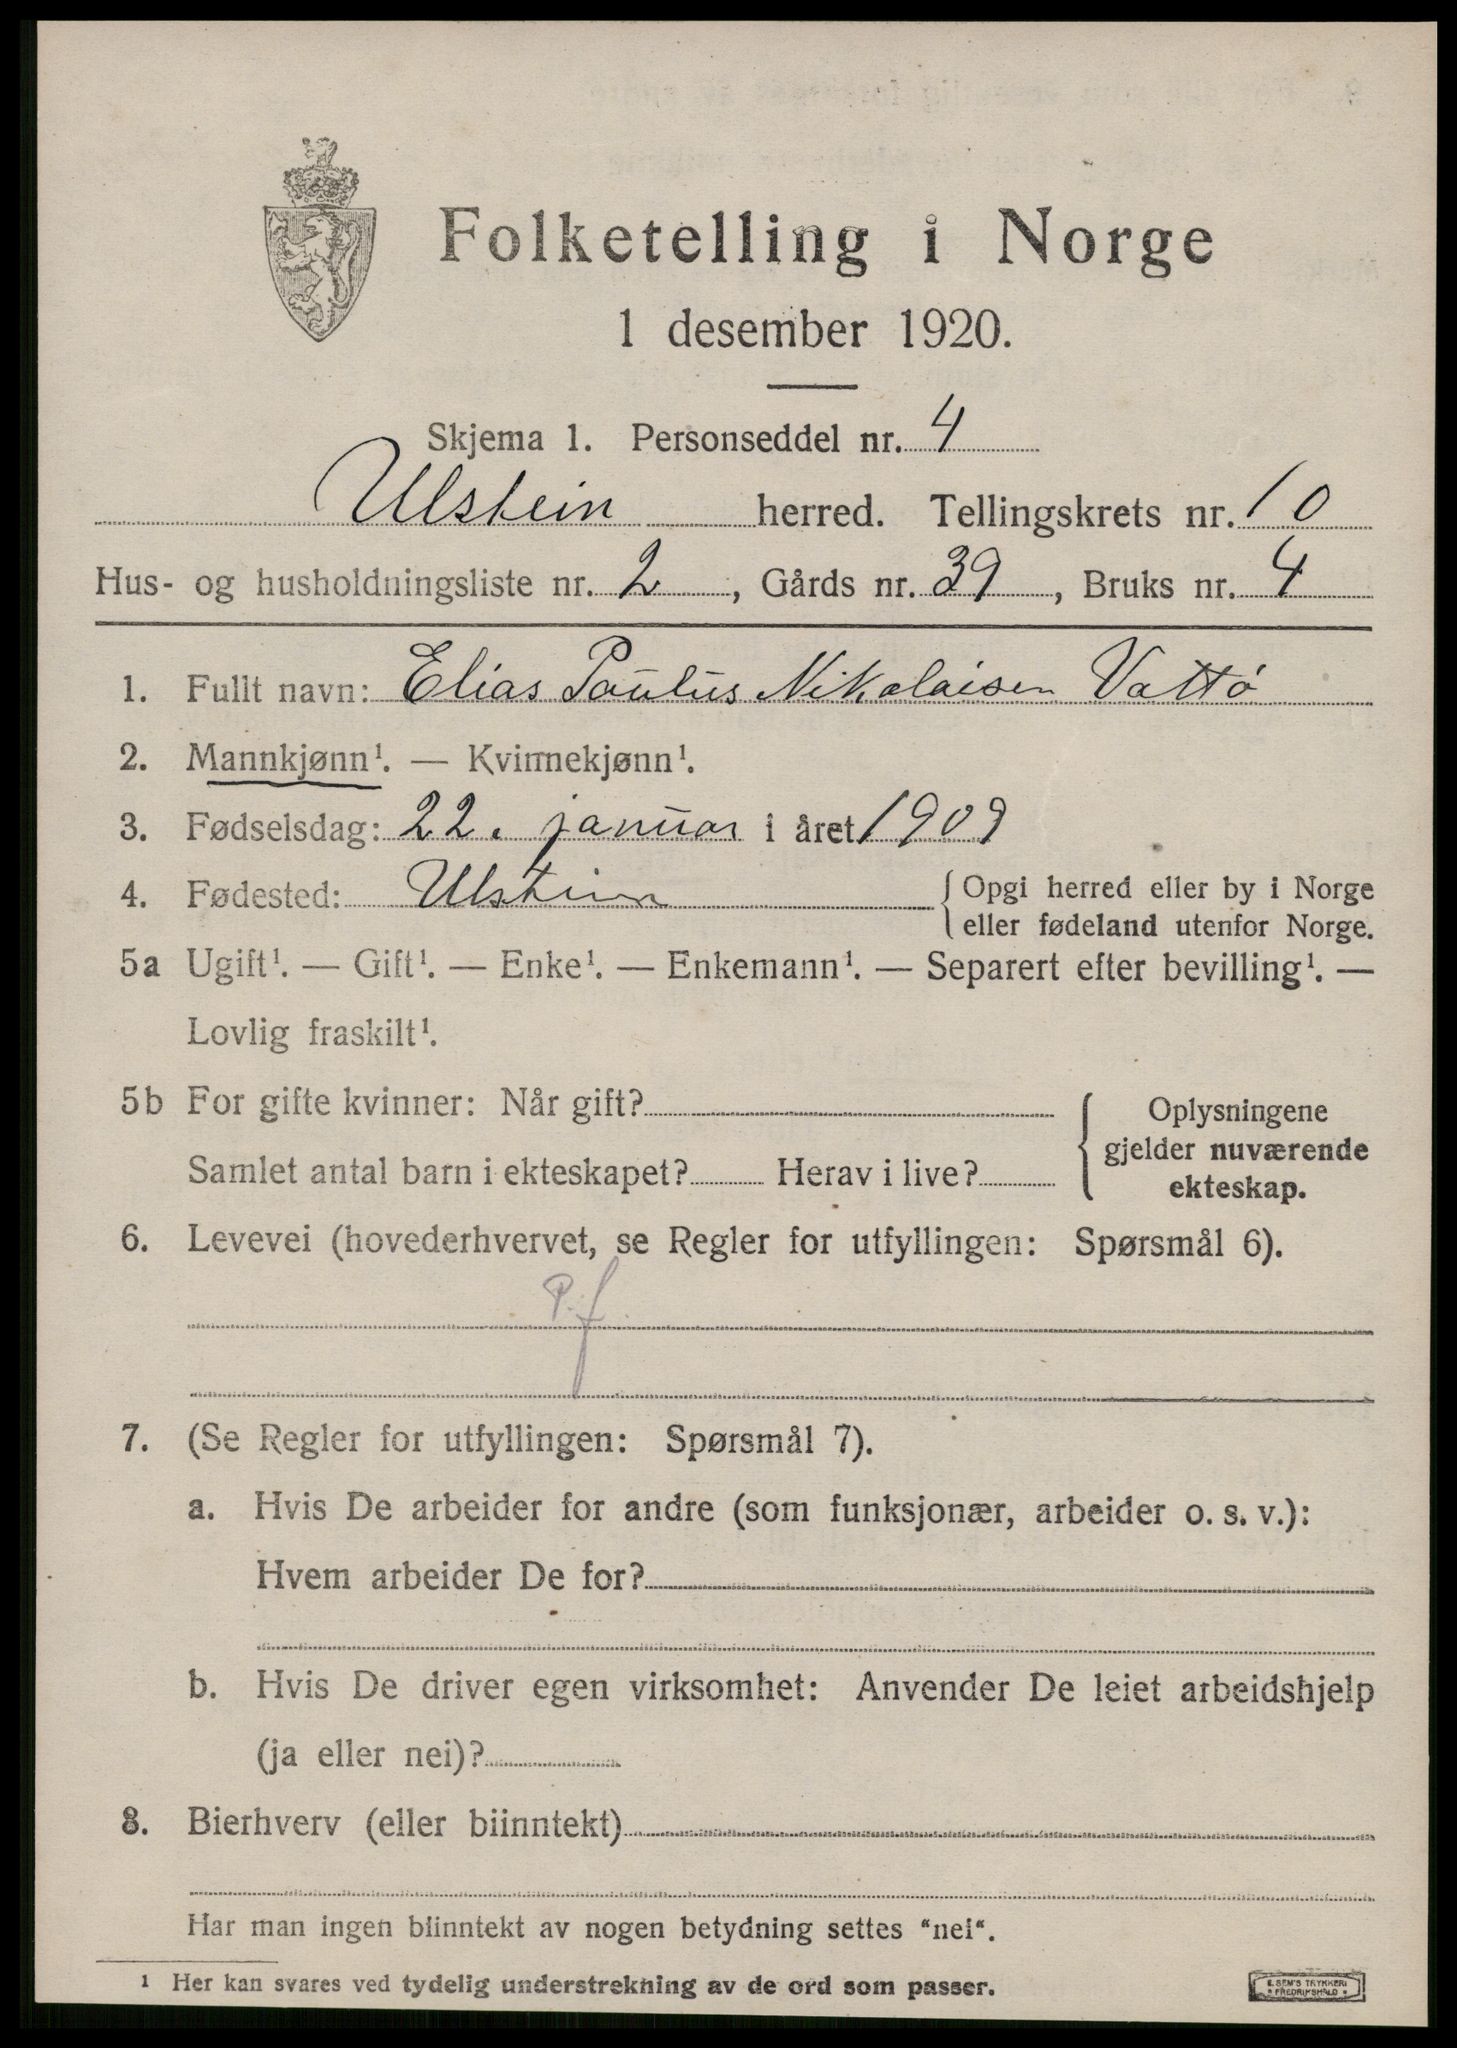 Folketelling i Norge
1 desember 1920.
Skjema 1. Personseddel nr. 4
Ulstein herred. Tellingskrets nr. 10
Hus- og husholdningsliste nr. 2, Gårds nr. 39, Bruks nr. 4
1. Fullt navn: Elias Paulus Nikolaisen Vattø
2. Mannkjønn¹. — Kvinnekjønn¹.
3. Fødselsdag: 22. januar i året 1909
4. Fødested: Ulstein {Opgi herred eller by i Norge
eller fødeland utenfor Norge.
5a Ugift¹. — Gift¹. — Enke¹. — Enkemann¹. — Separert efter bevilling¹. —
Lovlig fraskilt¹.
5b For gifte kvinner: Når gift?
Samlet antal barn i ekteskapet? Herav i live?
Oplysningene
gjelder nuværende
ekteskap.
6. Levevei (hovederhvervet, se Regler for utfyllingen: Spørsmål 6).
P.f.
7. (Se Regler for utfyllingen: Spørsmål 7).
a. Hvis De arbeider for andre (som funksjonær, arbeider o. s. v.):
Hvem arbeider De for?
b. Hvis De driver egen virksomhet: Anvender De leiet arbeidshjelp
(ja eller nei)?
8. Bierhverv (eller biinntekt)
Har man ingen biinntekt av nogen betydning settes "nei".
1 Her kan svares ved tydelig understrekning av de ord som passer.
E. SEM'S TRYKKERI
FREDRIKSHALD